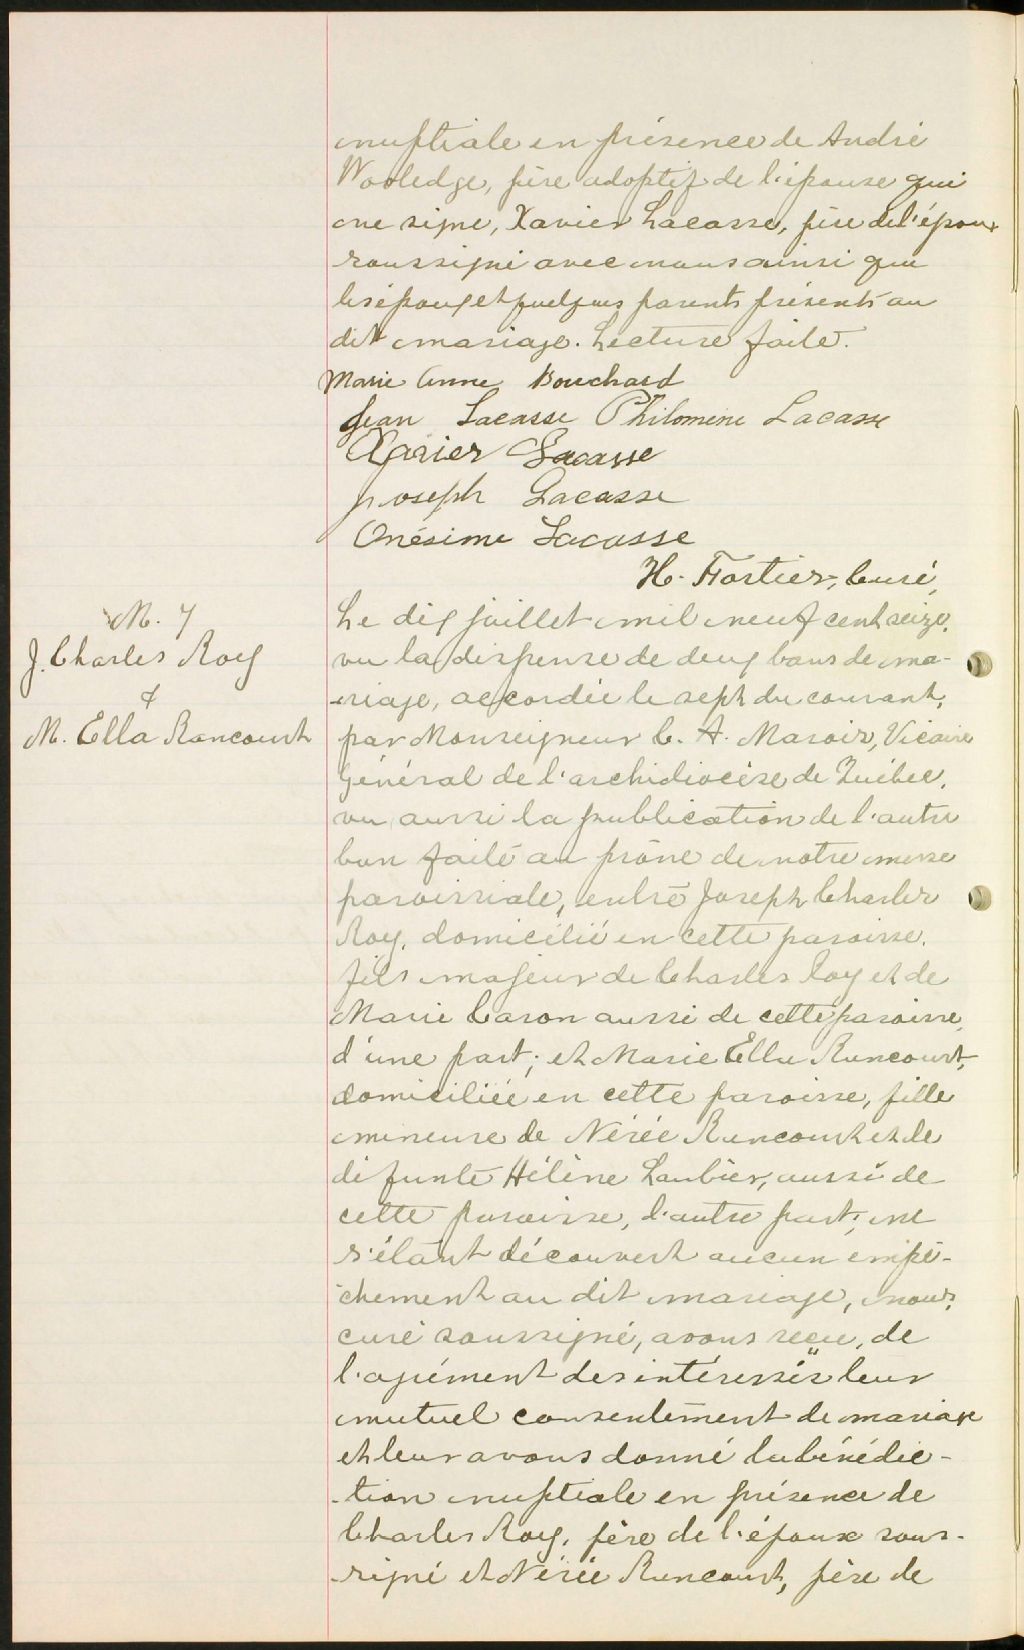 nuptiale en présence de André
Wooledge, père adoptif de l'épouse qui
ne signe, Xavier Lacasse, père de l'époux
soussigné avec nous ainsi que
les époux et quelques parents présents au
dit mariage. Lecture faite.
Marie Anne Bouchard
Jean Lacasse Philomène Lacasse
Xavier Lacasse
Joseph Lacasse
Onésime Lacasse
H. Fortier, Curé,
M. 7
J. Charles Roy
&
M. Ella Rancourt
Le dix juillet mil neuf cent seize,
vu la dispense de deux bans de ma-
-riage, accordée le sept du courant,
par Monseigneur C. A. Marois, Vicaire
Général de l'archidiocèse de Québec,
vu aussi la publication de l'autre
ban faite au prône de notre messe
paroissiale, entre Joseph Charles
Roy, domicilié en cette paroisse,
fils majeur de Charles Roy et de
Marie Caron aussi de cette paroisse,
d'une part; et Marie Ella Rancourt,
domiciliée en cette paroisse, fille
mineure de Nérée Rancourt et de
défunte Hélène Laubier, aussi de
cette paroisse, d'autre part; ne
s'étant découvert aucun empê-
-chement au dit mariage, nous,
curé soussigné, avons reçu, de
l'agrément des intéressés leur
mutuel consentement de mariage
et leur avons donné la bénédic-
-tion nuptiale en présence de
Charles Roy, père de l'époux sous-
-signé et Nérée Rancourt, père de